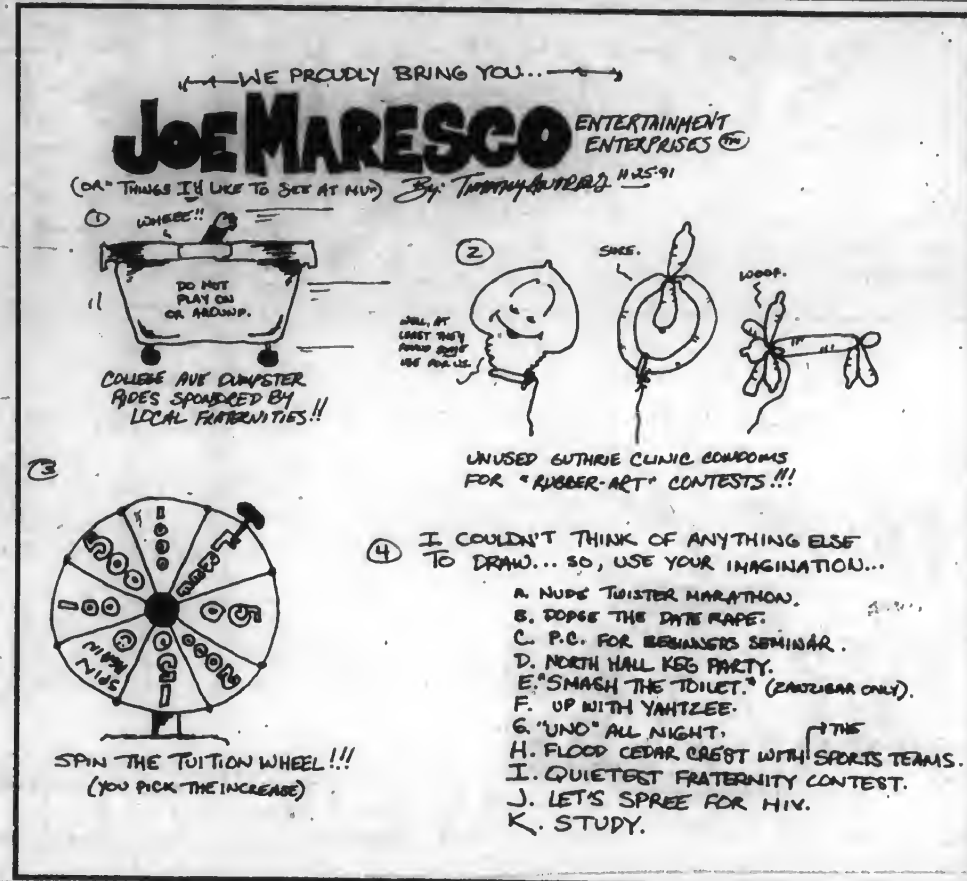 WE PROUDLY BRING YOU...
JOE MARESCO ENTERTAINMENT
ENTERPRISES TM
(OR "THINGS I'd LIKE TO SEE AT MU") By: Timothy 11·25·91
①
WHEEE!!
DO NOT
PLAY ON
OR AROUND.
COLLEGE AVE DUMPSTER
RIDES SPONSORED BY
LOCAL FRATERNITIES!!
②
WELL, AT
LEAST THEY
FOUND SOME
USE FOR US.
SURE.
WOOF.
UNUSED GUTHRIE CLINIC CONDOMS
FOR "RUBBER-ART" CONTESTS!!!
③
1000
50
2000
SPIN
AGAIN
100
5000
SPIN THE TUITION WHEEL!!!
(YOU PICK THE INCREASE)
④ I COULDN'T THINK OF ANYTHING ELSE
TO DRAW... SO, USE YOUR IMAGINATION...
A. NUDE TWISTER MARATHON.
B. DODGE THE DATE RAPE.
C. P.C. FOR BEGINNERS SEMINAR.
D. NORTH HALL KEG PARTY.
E. "SMASH THE TOILET." (ZANZIBAR ONLY).
F. UP WITH YAHTZEE.
G. "UNO" ALL NIGHT.
H. FLOOD CEDAR CREST WITH THE SPORTS TEAMS.
I. QUIETEST FRATERNITY CONTEST.
J. LET'S SPREE FOR HIV.
K. STUDY.